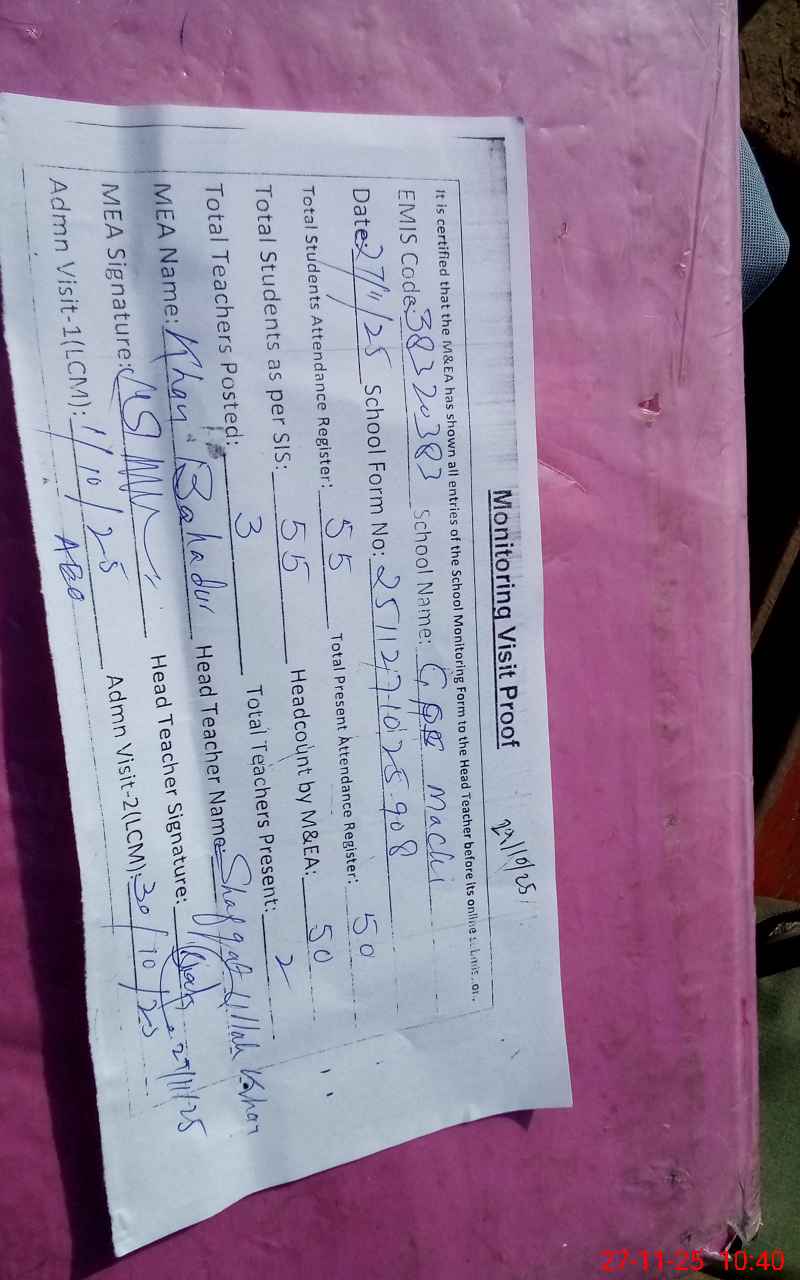 Monitoring Visit Proof
29/10/25
It is certified that the M&EA has shown all entries of the School Monitoring Form to the Head Teacher before its online
EMIS Code: 38320383 School Name: Machi
Date: 27/11/25 School Form No: 2511271025908
Total Students Attendance Register: 55 Total Present Attendance Register: 50
Total Students as per SIS: 55 Headcount by M&EA: 50
Total Teachers Posted: 3 Total Teachers Present: 2
MEA Name: Khan Bahadur Head Teacher Name: Shafqat Ullah Khan
MEA Signature: Head Teacher Signature: 27/11/25
Admn Visit-1(LCM): 1/10/25 Admn Visit-2(LCM): 30/10/25
27-11-25 10:40